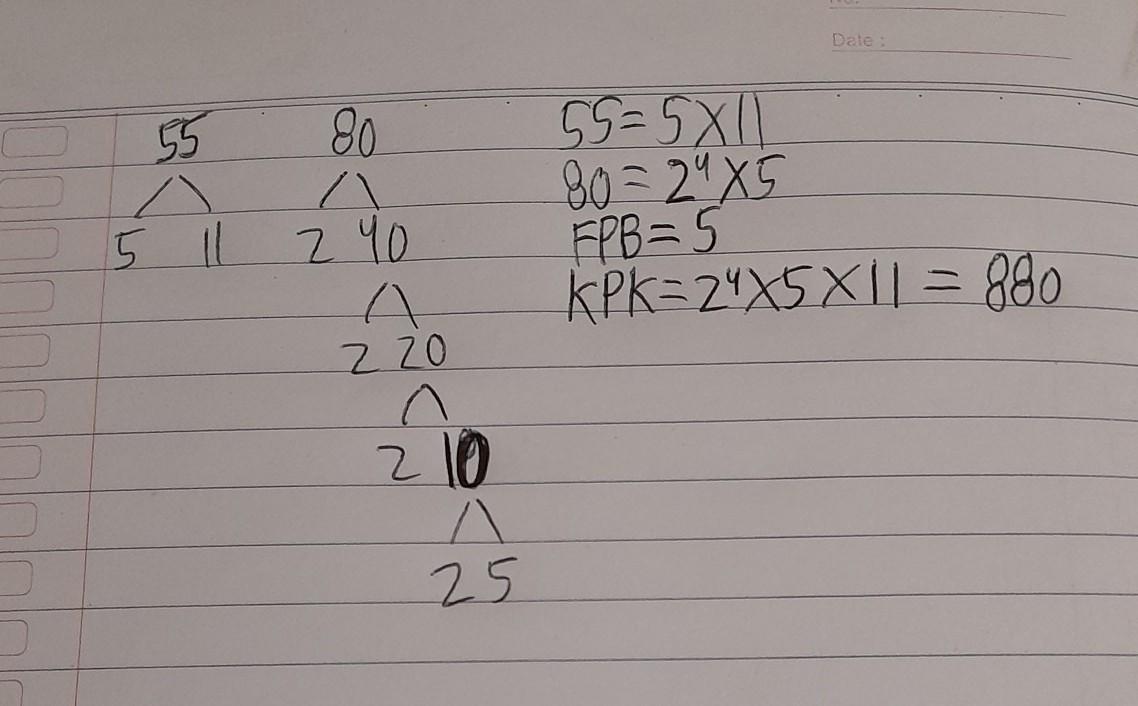 No:
Date :
55 80
5 11 2 40
2 20
2 10
2 5
55 = 5 X 11
80 = 2⁴ X 5
FPB = 5
KPK = 2⁴ X 5 X 11 = 880